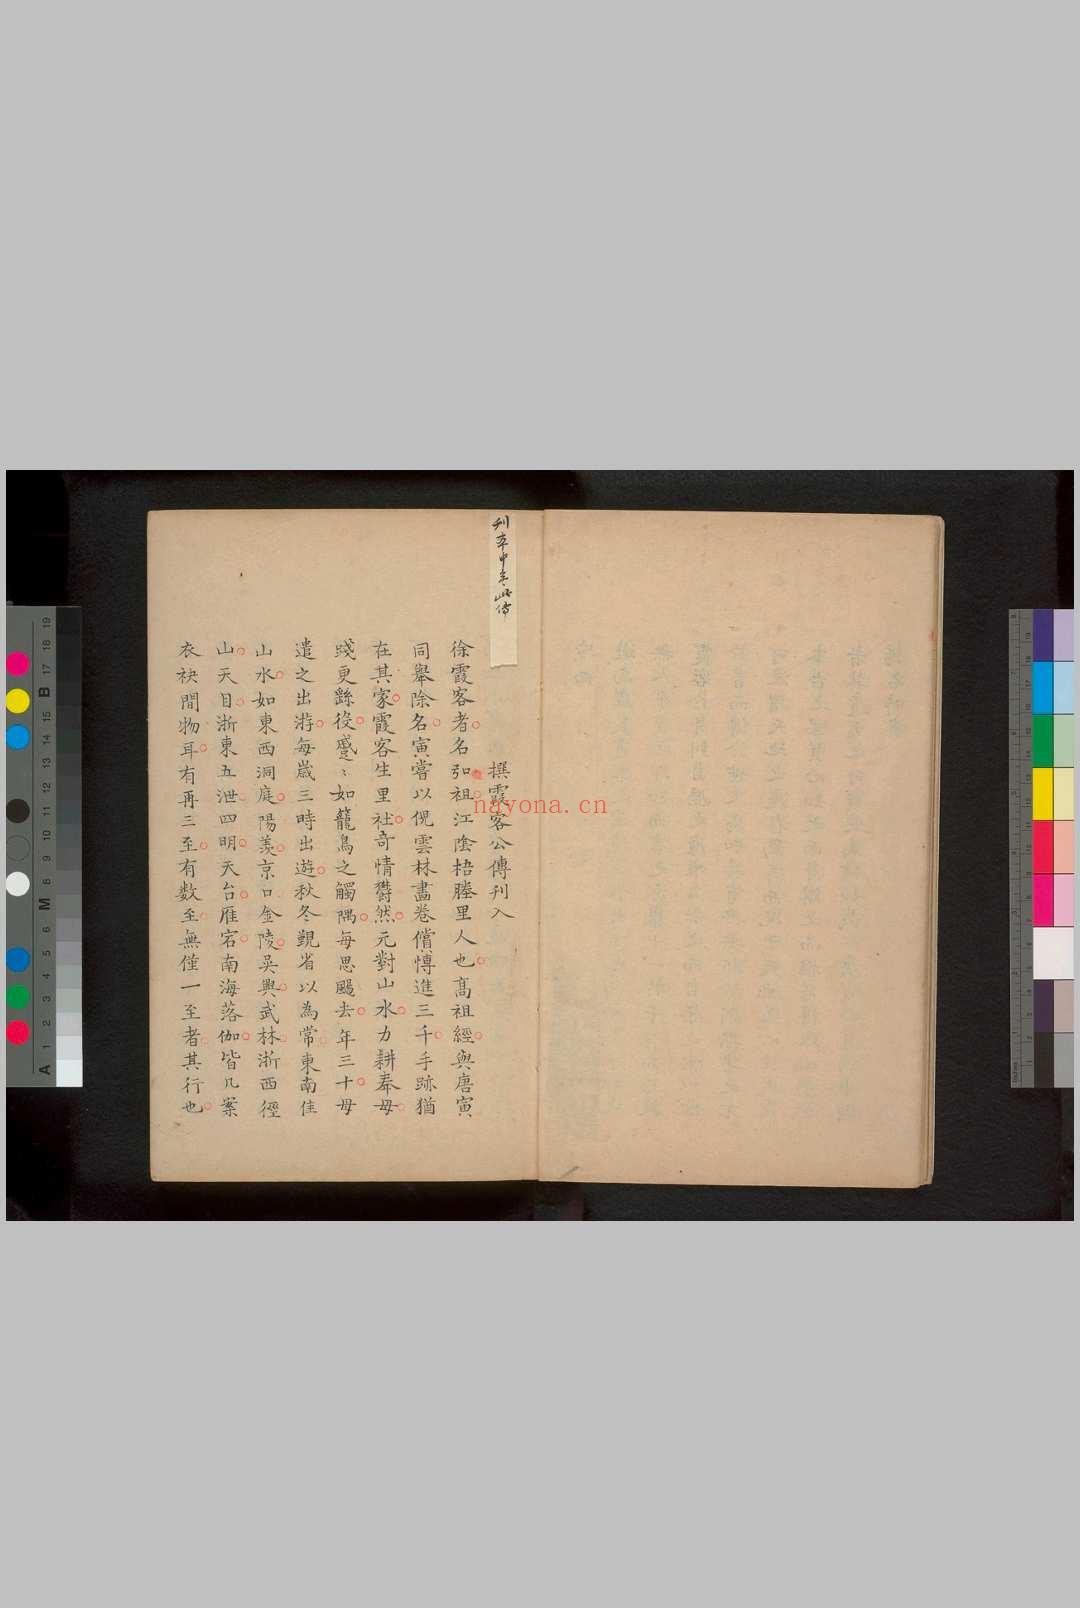 刊本中無此傳
撰霞客公傳刊入
徐霞客者名弘祖江陰梧塍里人也高祖經與唐寅
同舉除名寅嘗以倪雲林畫卷償愽進三千手跡猶
在其家霞客生里社奇情欝然元對山水力耕奉母
踐更繇役蹙〻如籠鳥之觸隅每思颺去年三十母
遣之出游每歲三時出遊秋冬覲省以為常東南佳
山水如東西洞庭陽羨京口金陵吳興武林浙西徑
山天目浙東五泄四明天台雁宕南海落伽皆几案
衣袂間物耳有再三至有数至無僅一至者其行也
nayona.cn